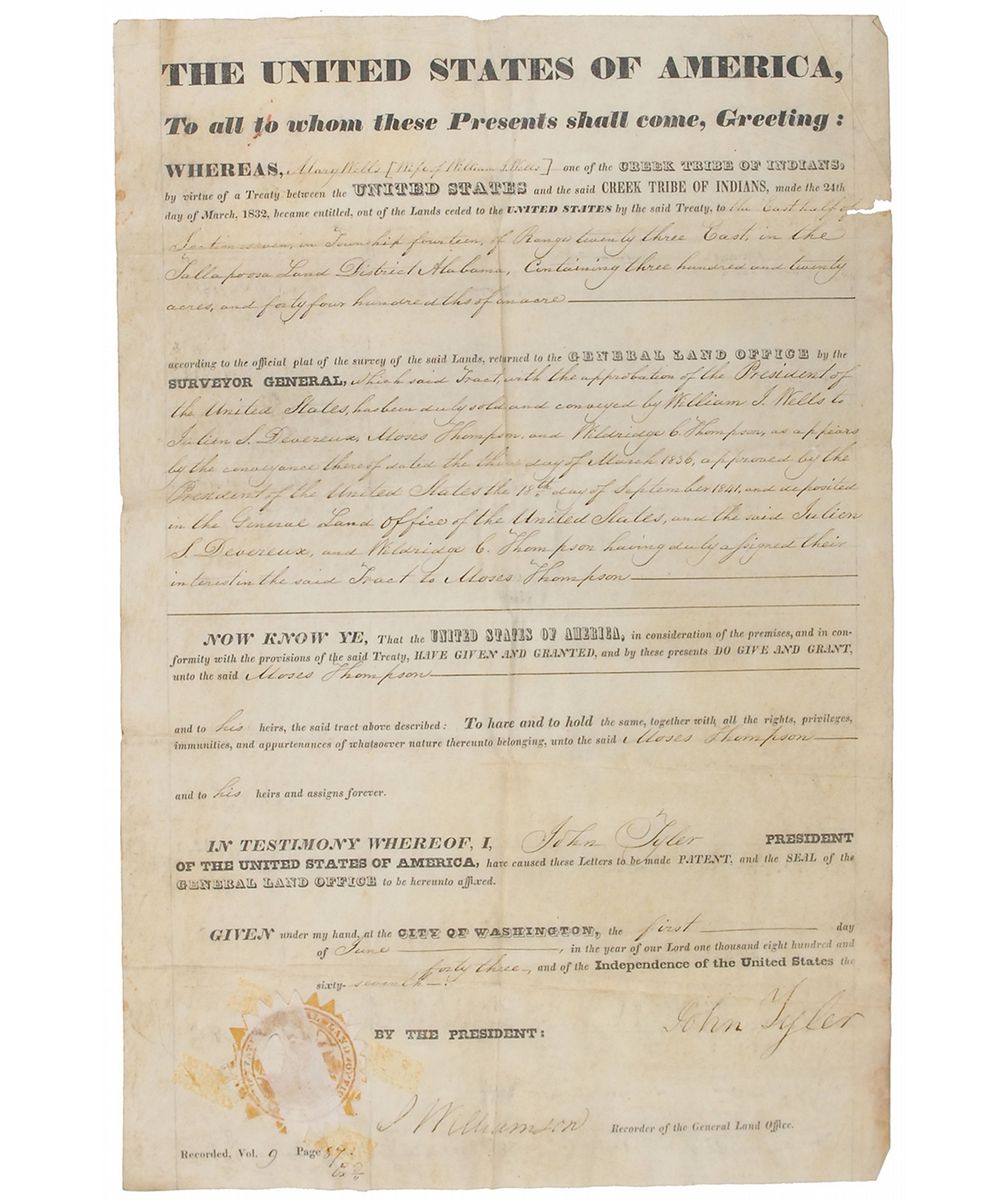 THE UNITED STATES OF AMERICA,
To all to whom these Presents shall come, Greeting:
WHEREAS, Mary Wells [Wife of William J. Wells] one of the CREEK TRIBE OF INDIANS,
by virtue of a Treaty between the UNITED STATES and the said CREEK TRIBE OF INDIANS, made the 24th
day of March, 1832, became entitled, out of the Lands ceded to the UNITED STATES by the said Treaty, to the East half of
Section seven, in Township fourteen, of Range twenty three East, in the
Tallapoosa Land District Alabama, Containing three hundred and twenty
acres, and forty four hundredths of an acre
according to the official plat of the survey of the said Lands, returned to the GENERAL LAND OFFICE by the
SURVEYOR GENERAL, which said Tract, with the approbation of the President of
the United States, has been duly sold and conveyed by William J. Wells to
Julien S. Devereux, Moses Thompson, and Weldridge C. Thompson, as appears
by the conveyance thereof dated the third day of March 1836, approved by the
President of the United States the 18th day of September 1841, and deposited
in the General Land Office of the United States, and the said Julien
S. Devereux, and Weldridge C. Thompson having duly assigned their
interest in the said Tract to Moses Thompson
NOW KNOW YE, That the UNITED STATES OF AMERICA, in consideration of the premises, and in con-
formity with the provisions of the said Treaty, HAVE GIVEN AND GRANTED, and by these presents DO GIVE AND GRANT,
unto the said Moses Thompson
and to his heirs, the said tract above described: To have and to hold the same, together with all the rights, privileges,
immunities, and appurtenances of whatsoever nature thereunto belonging, unto the said Moses Thompson
and to his heirs and assigns forever.
IN TESTIMONY WHEREOF, I, John Tyler PRESIDENT
OF THE UNITED STATES OF AMERICA, have caused these Letters to be made PATENT, and the SEAL of the
GENERAL LAND OFFICE to be hereunto affixed.
GIVEN under my hand, at the CITY OF WASHINGTON, the first day
of June, in the year of our Lord one thousand eight hundred and
forty three, and of the Independence of the United States the
sixty-seventh.
BY THE PRESIDENT: John Tyler
J Williamson Recorder of the General Land Office.
Recorded, Vol. 9 Page